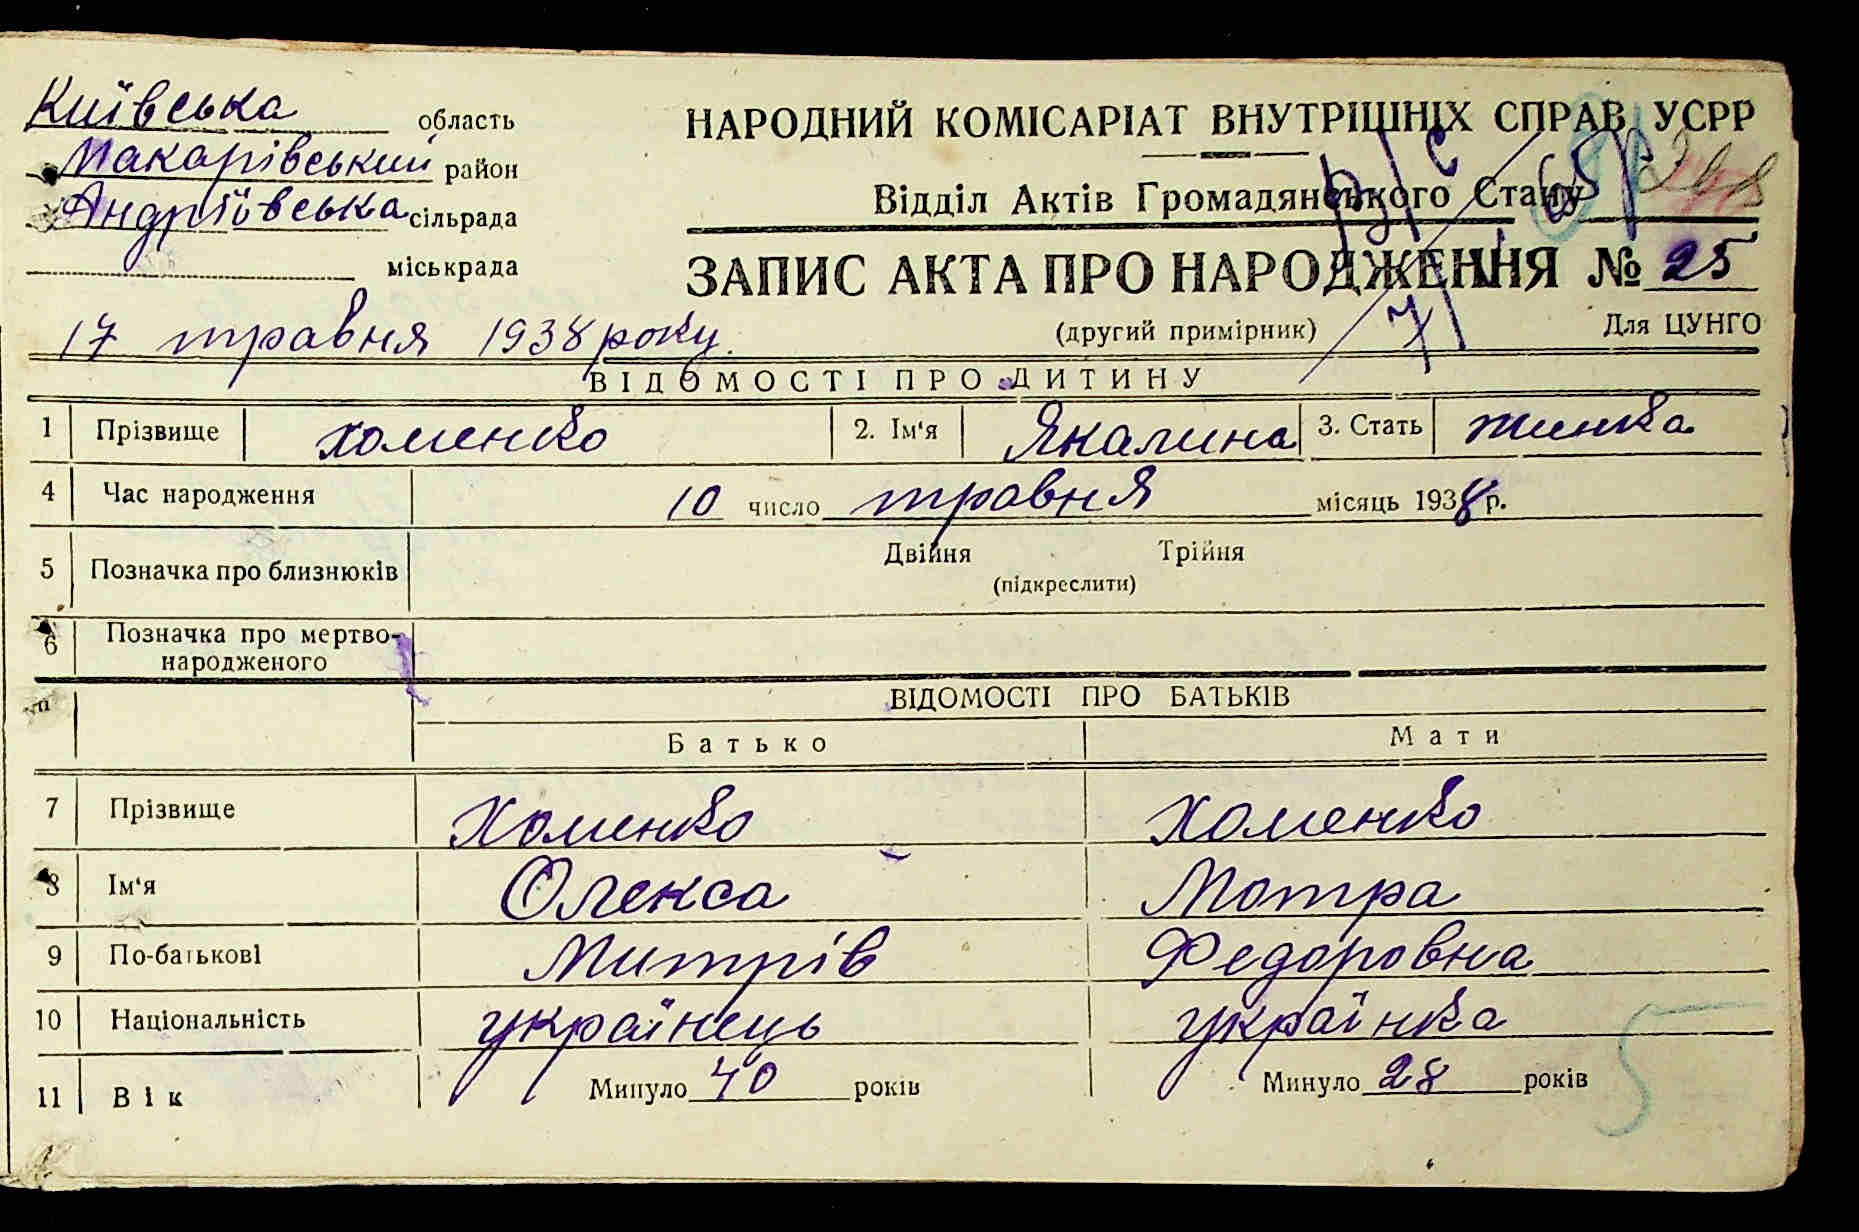 Київська область
Макарівський район
Андріївська сільрада
міськрада
НАРОДНИЙ КОМІСАРІАТ ВНУТРІШНІХ СПРАВ УСРР
Відділ Актів Громадянського Стану
ЗАПИС АКТА ПРО НАРОДЖЕННЯ № 25
17 травня 1938 року.
(другий примірник) Для ЦУНГО
71
ВІДОМОСТІ ПРО ДИТИНУ
1 Прізвище Хоменко 2. Ім‘я Якалина 3. Стать жинка
4 Час народження 10 число травня місяць 1938 р.
5 Позначка про близнюків Двійня Трійня
(підкреслити)
6 Позначка про мертво-
народженого
ВІДОМОСТІ ПРО БАТЬКІВ
Батько Мати
7 Прізвище Хоменко Хоменко
8 Ім‘я Олекса Мотра
9 По-батькові Митрів Федоровна
10 Національність українець українка
11 Вік Минуло 40 років Минуло 28 років
5